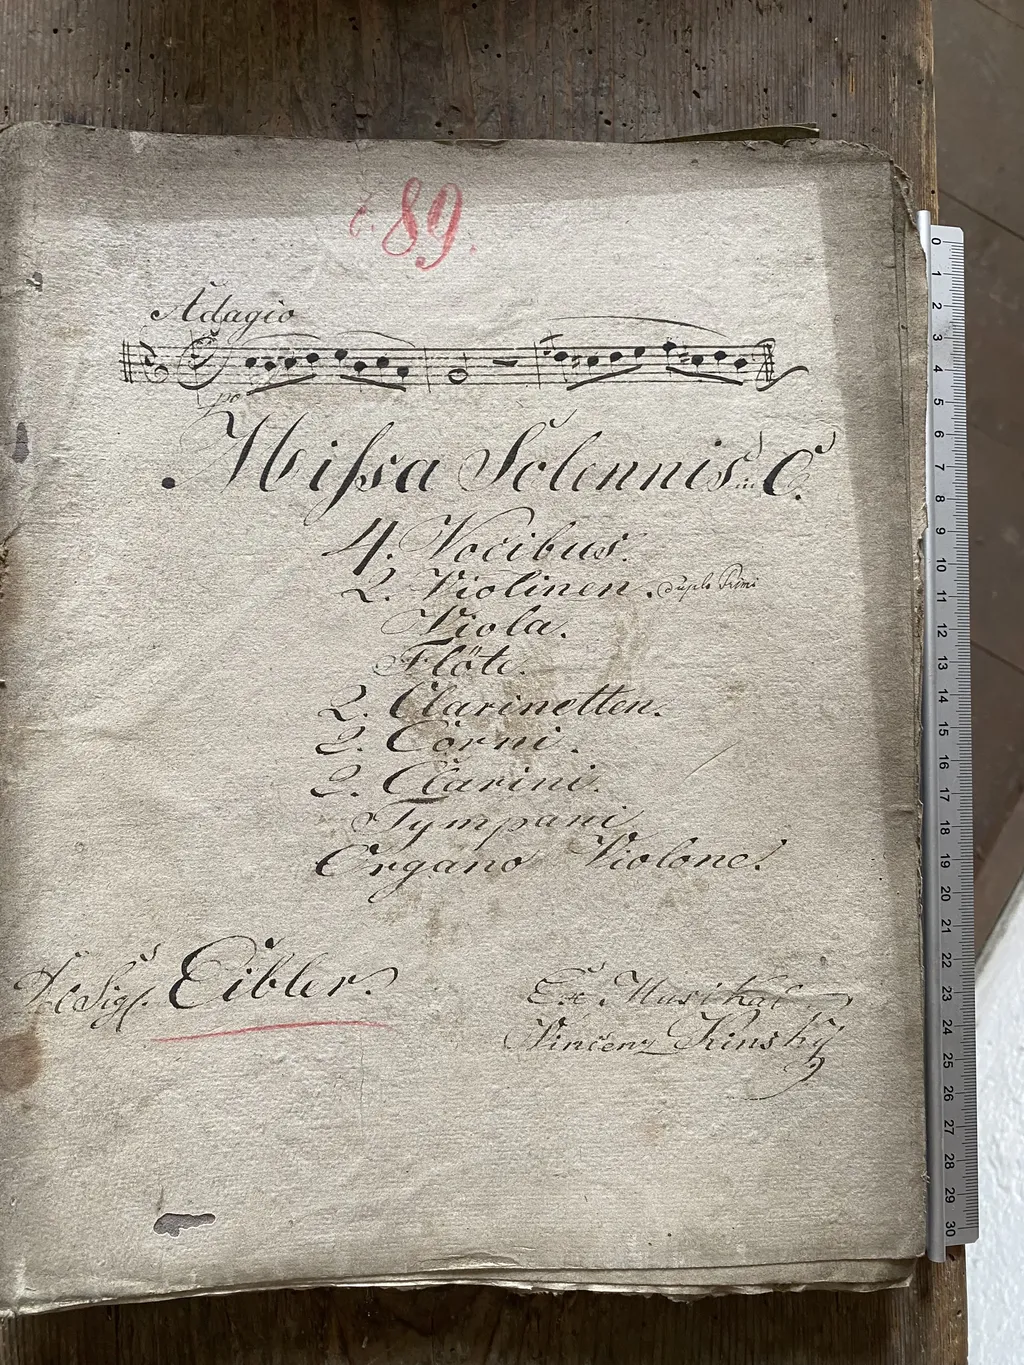 89.
Adagio
po
Missa Solennis in C.
4. Vocibus.
2. Violinen. duplo Primo
Viola.
Flöte.
2. Clarinetten.
2. Corni.
2. Clarini.
Tympani
Organo Violone.
Del Sigl. Eibler.
Ex Musikal
Vincenz Kinsky
0 1 2 3 4 5 6 7 8 9 10 11 12 13 14 15 16 17 18 19 20 21 22 23 24 25 26 27 28 29 30